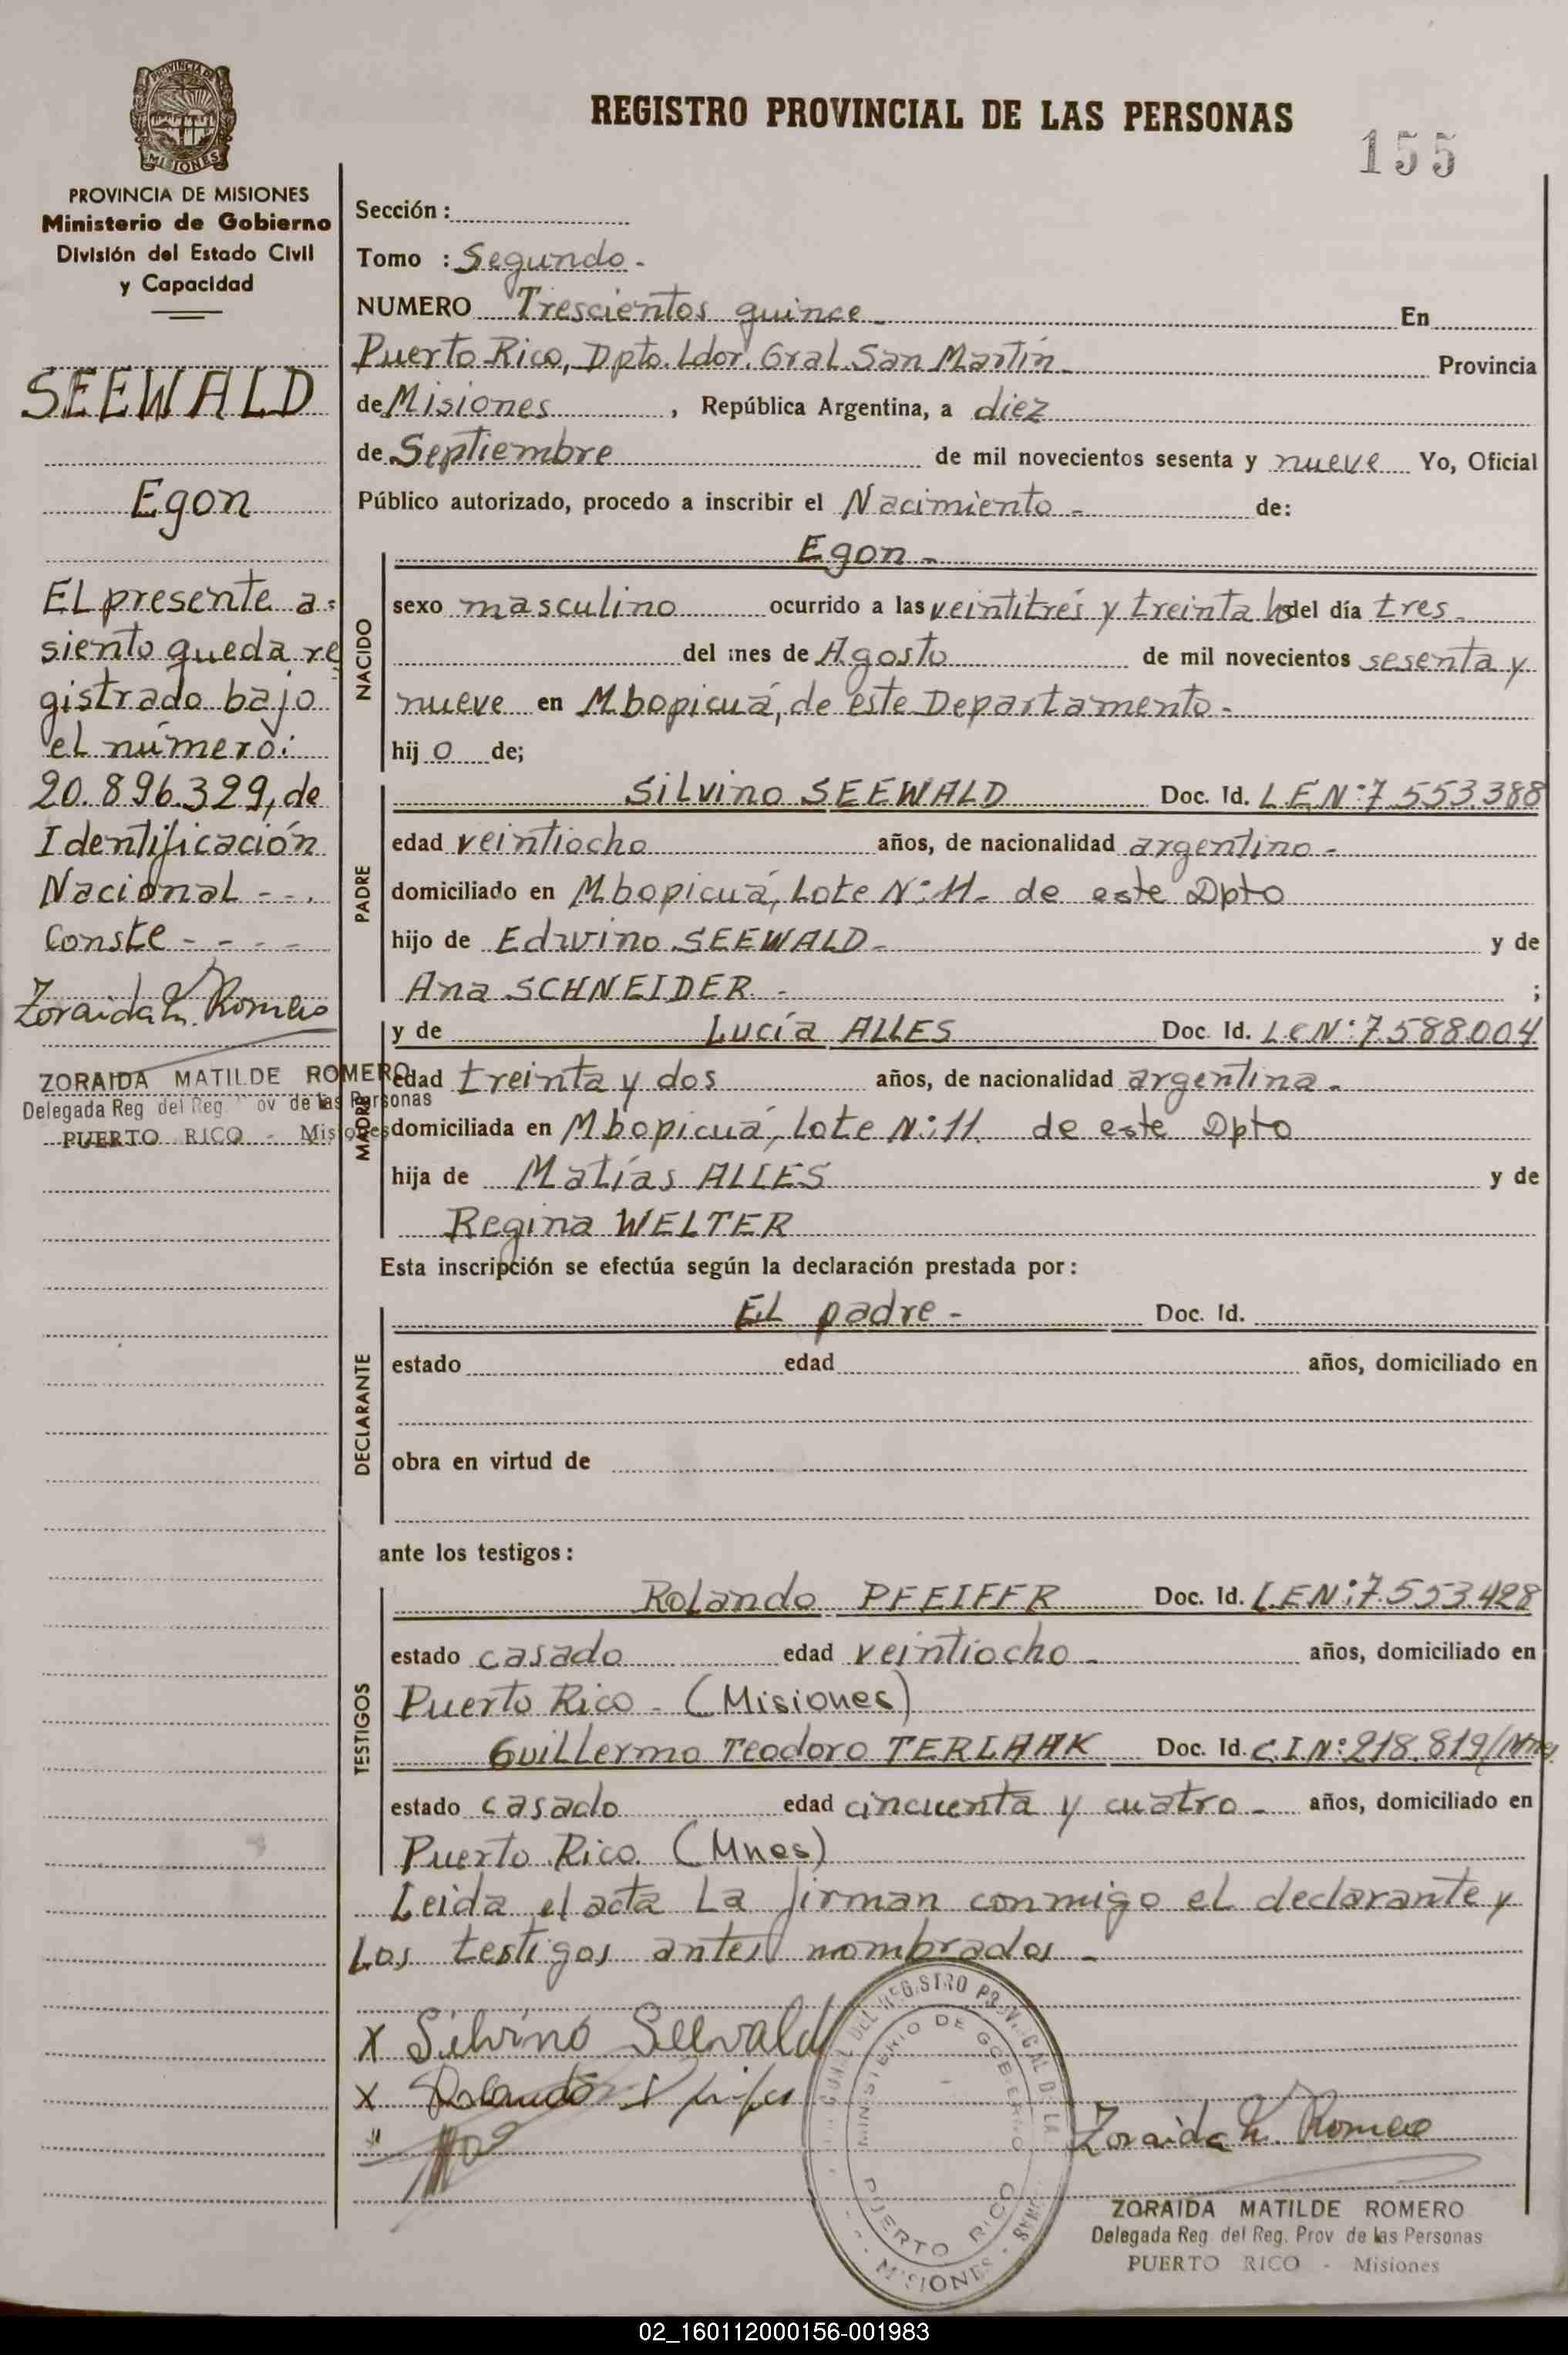 PROVINCIA DE
MISIONES
PROVINCIA DE MISIONES
Ministerio de Gobierno
División del Estado Civil
y Capacidad
SEEWALD
Egon
El presente a-
siento queda re
gistrado bajo
el número:
20.896.329, de
Identificación
Nacional - - .
Conste - - - -
Zoraida M. Romero
ZORAIDA MATILDE ROMERO
Delegada Reg del Reg ov de las Personas
PUERTO RICO - Misiones
REGISTRO PROVINCIAL DE LAS PERSONAS
155
Sección :
Tomo : Segundo.-
NUMERO Trescientos quince - En
Puerto Rico, Dpto. Ldor. Gral. San Martín - Provincia
de Misiones , República Argentina, a diez
de Septiembre de mil novecientos sesenta y nueve Yo, Oficial
Público autorizado, procedo a inscribir el Nacimiento - de:
NACIDO
Egon -
sexo masculino ocurrido a las veintitrés y treinta hs del día tres -
del mes de Agosto de mil novecientos sesenta y
nueve en Mbopicuá, de este Departamento -
hij o de;
PADRE
Silvino SEEWALD Doc. Id. L.E.N°: 7.553.388
edad veintiocho años, de nacionalidad argentino -
domiciliado en Mbopicuá, Lote N°: 11- de este Dpto
hijo de Edwino SEEWALD - y de
Ana SCHNEIDER - ;
MADRE
y de Lucía ALLES Doc. Id. L.C.N°: 7.588.004
edad treinta y dos años, de nacionalidad argentina -
domiciliada en Mbopicuá, Lote N°: 11. de este Dpto
hija de Matías ALLES y de
Regina WELTER
Esta inscripción se efectúa según la declaración prestada por :
DECLARANTE
El padre - Doc. Id.
estado edad años, domiciliado en
obra en virtud de
ante los testigos :
TESTIGOS
Rolando PFEIFFR Doc. Id. L.E.N°: 7.553.428
estado casado edad veintiocho - años, domiciliado en
Puerto Rico - (Misiones)
Guillermo Teodoro TERLAAK Doc. Id. C.I.N°: 218.819/Mnes.
estado casado edad cincuenta y cuatro - años, domiciliado en
Puerto Rico. (Mnes)
Leida el acta La firman conmigo el declarante y
Los testigos antes nombrados -
x Silvino Seewald
x Rolando
DEL REGISTRO PROVINCIAL DE LA
MINISTERIO DE GOBIERNO
PUERTO RICO
- MISIONES -
Zoraida M. Romero
ZORAIDA MATILDE ROMERO
Delegada Reg. del Reg. Prov de las Personas
PUERTO RICO - Misiones
02_160112000156-001983